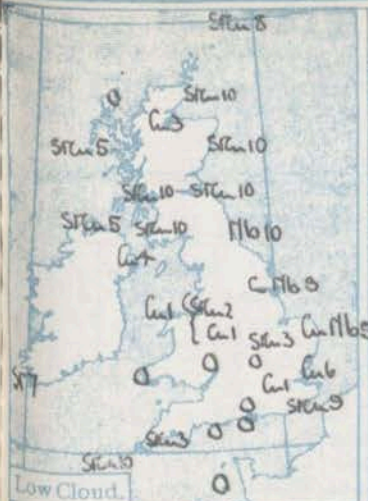 StCu 8
O
StCu 10
Cu 3
StCu 5
StCu 10
StCu 10 StCu 10
StCu 5 StCu 10
Nb 10
Cu 4
CuNb 9
Cu 1 { StCu 2
Cu 1
StCu 3
CuNb 5
O
O
O
Cu 6
St 7
Cu 1
O
StCu 9
StCu 3
O
O
StCu 10
O
Low Cloud.